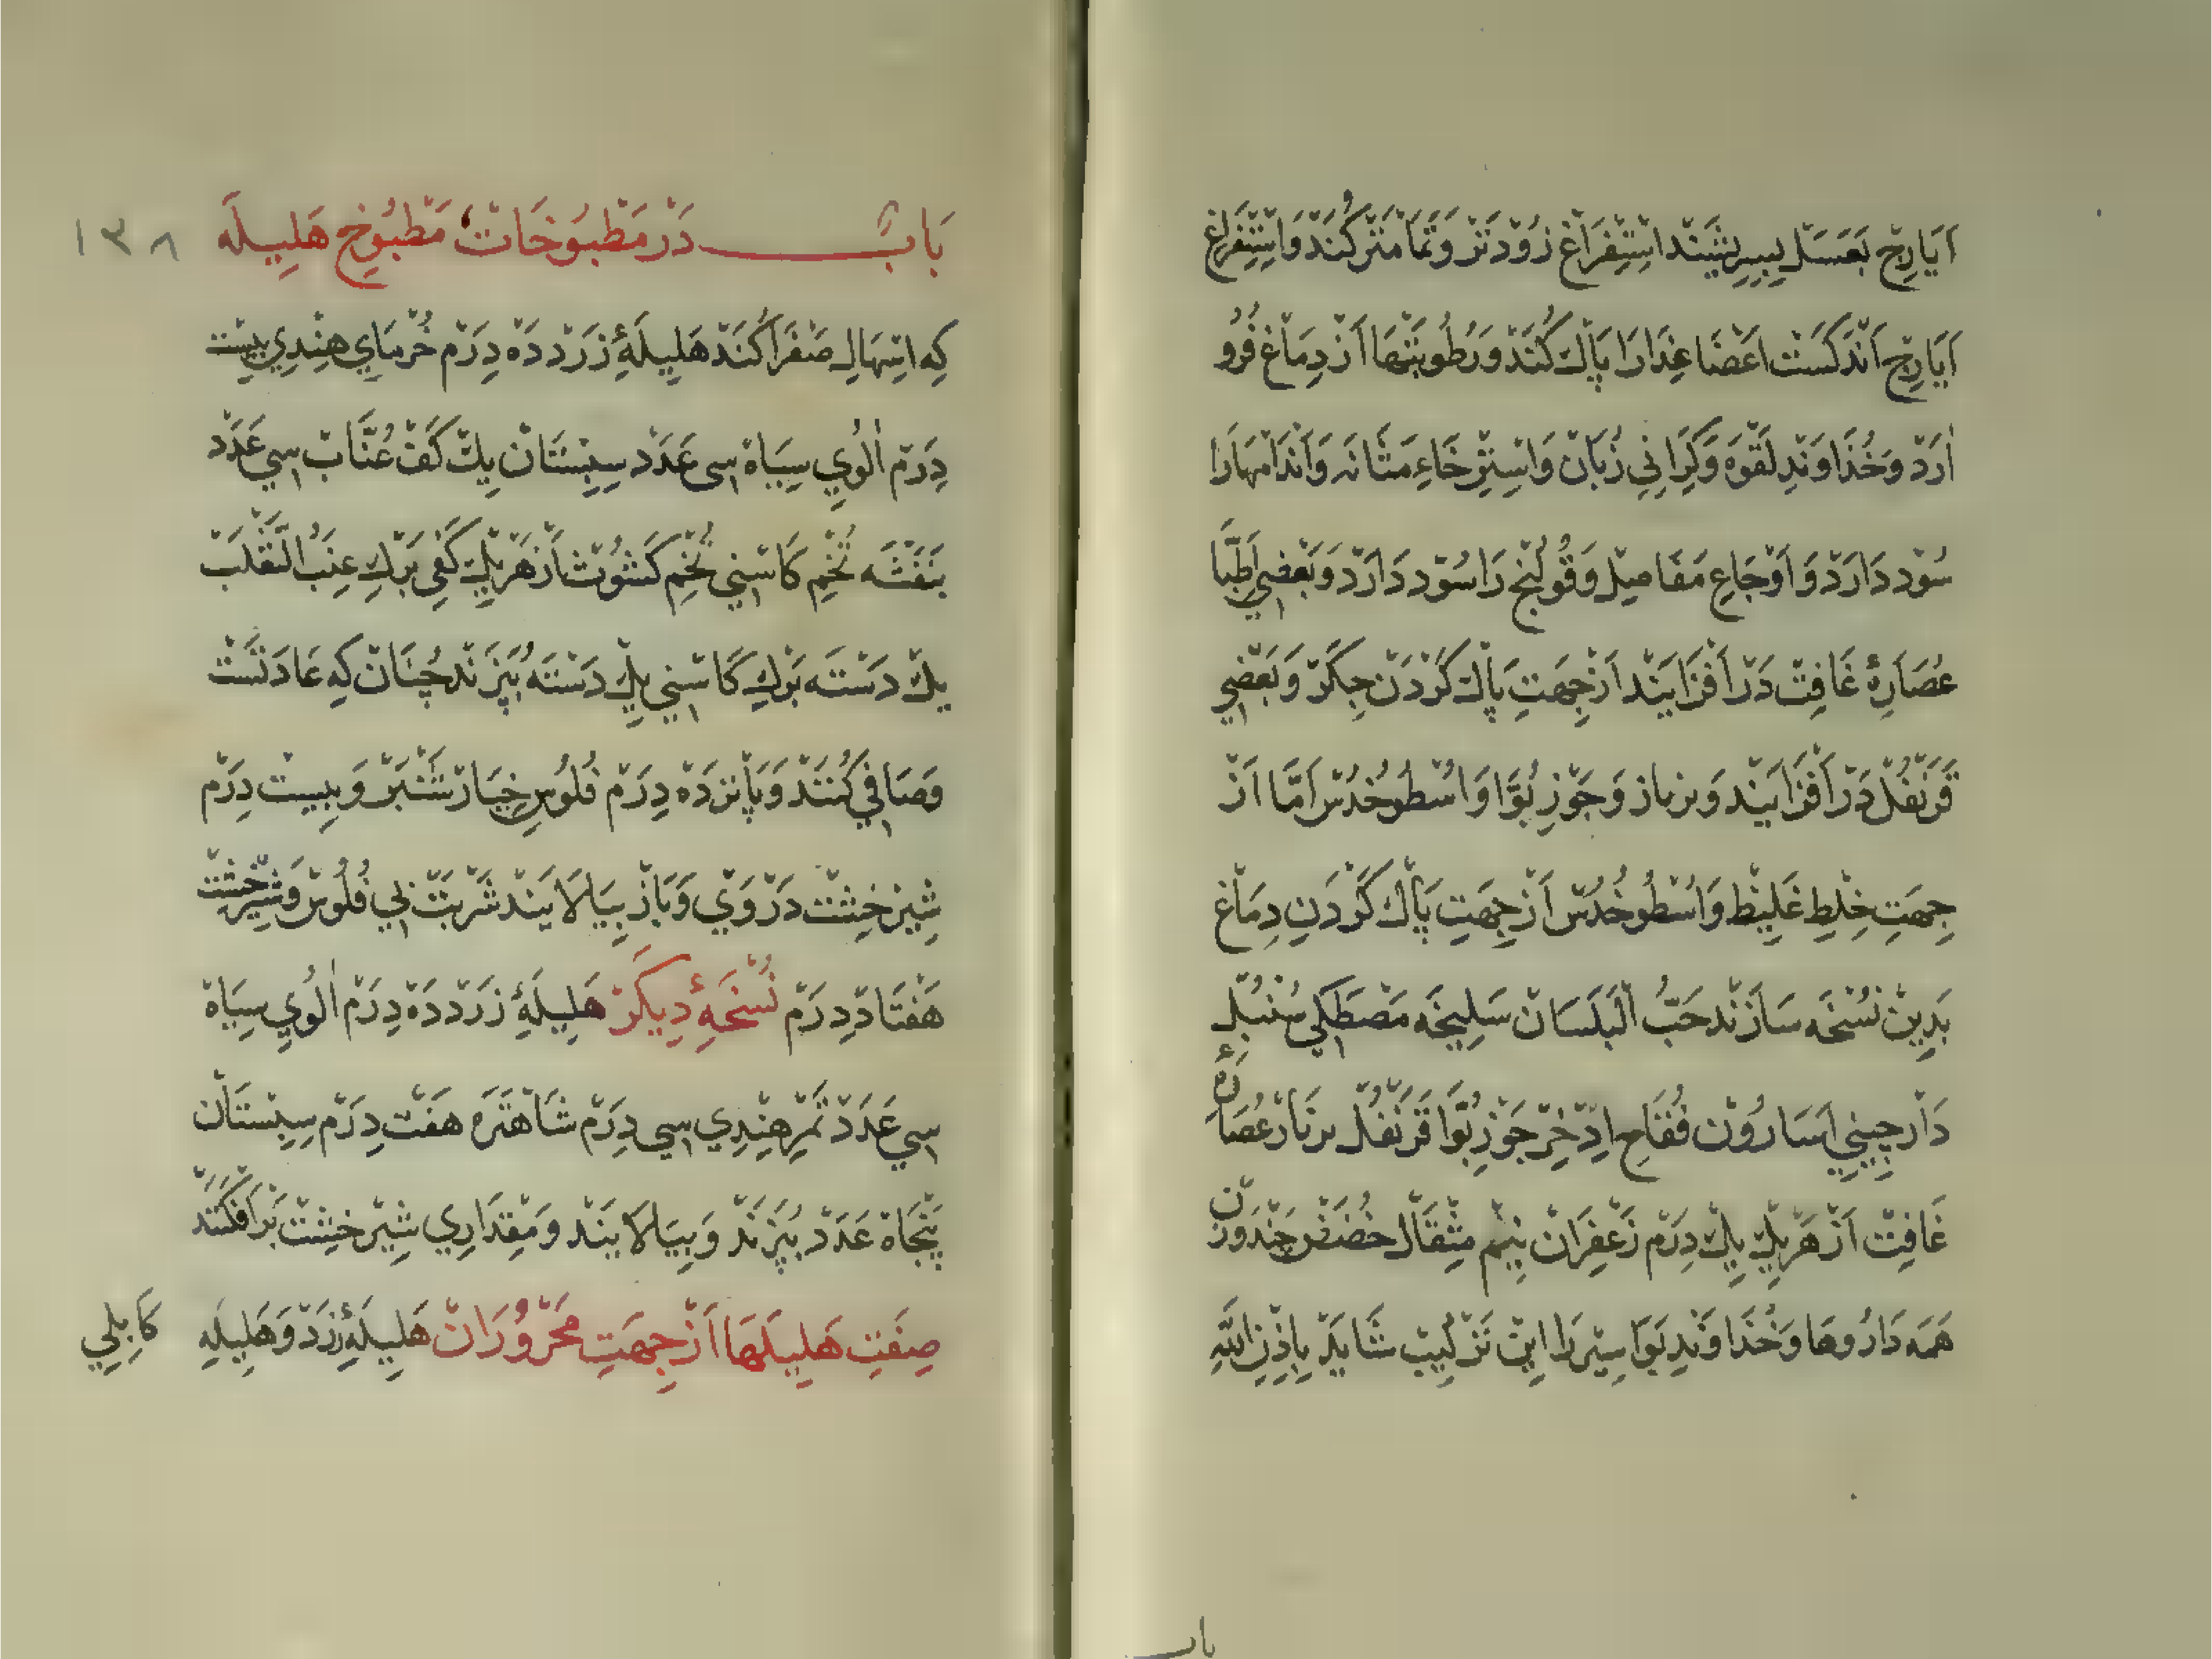 اَیَارِج بَعَسَل بِسِرِشَنْد اسْتِفْرَاغ زُوْدْتَرْ وَتَمَامْتَرْ کُنَدْ وَاسْتِفْرَاغ
اَیَارِج اَنْدَکَسْت اَعْضَا غِذَا رَا پَاک کُنَدْ وَرُطُوبَتْهَا اَزْ دِمَاغ فُرُو
اٰرَدْ وَخُذَاوَنْدِ لَقْوَه وَکَرَانِی زُبَانْ وَاسْتِرْخَاءِ مَثَانَه وَاَنْدَامْهَارَا
سُوْد دَارَدْ وَاَوْجَاعِ مَفَاصِلْ وَقُولَنْج رَا سُوْد دَارَدْ وَبَعْضِی اَطِبَّا
عُصَارِهٔ غَافِتْ دَرْ اَفْزَایَنْد اَزْ جِهَتِ پَاک کَرْدَن جِکَرْ وَبَعْضِی
قَرَنْفُلْ دَرْ اَفْزَایَنْد وَبزباز وَجَوْزِ بُوَّا وَاُسْطُوخُدُسْ اَمَّا اَزْ
جِهَتِ خِلْطِ غَلِیْظْ وَاُسْطُوخُدُسْ اَزْ جِهَتِ پَاک کَرْدَنِ دِمَاغ
بَدِیْن نُسْخَه سَازَنْد حَبُّ الْبَلَسَانْ سَلِیخَه مَصْطَکِی سُنْبُلْ
دَارچِینِی اَسَارُوْن فُقَاح اِذْخِرْ جَوْزِ بُوَّا قَرَنْفُلْ بزباز عُصَارَهٔ
غَافِتْ اَزْ هَرْیِکْ یِکْ دِرَمْ زَعْفَرَانْ نِیْم مِثْقَالْ چَنْد وَزْن
هَمَه دَارُوهَا وَخُذَاوَنْدِ بَوَاسِیْر رَا ایِنْ تَرْکِیبْ شَایَدْ بِاِذْنِ اللَّهِ
باب
بَابْ دَرْ مَطْبُوخَاتْ مَطْبُوخِ هَلِیلَه ١٣٨
کِه اسْهَالِ صَفْرَا کُنَدْ هَلِیلَهٔ زَرْد دَهْ دِرَمْ خُرْمَایِ هِنْدِی بِیسْت
دِرَمْ اٰلُوِی سِیَاهْ سِی عَدَد سِبِسْتَانْ یِکْ کَفْ عُنَّابْ سِی عَدَد
بَنَفْشَه تُخْمِ کَاسْنِی تُخْمِ کَشُوْثْ اَزْ هَرْیِکْ کَفِی بَرْکِ عِنَبُ الثَّعْلَبْ
یِکْ دَسْتَه بَرْکِ کَاسْنِی یِکْ دَسْتَه بُپَزَنْد چُنَانْ کِه عَادَتَسْت
وَصَافِی کُنَنْدْ وَپَانزدَهْ دِرَمْ فُلُوسِ خِیَارْشَنْبَرْ وَبِیسْت دِرَمْ
شِیْر خِشْتْ دَرْ وَیْ وَبَازْ بِپَالَایَنْد شَرْبَتْ بِی فُلُوسْ وَشِیْرخِشْت
هَفْتَادْ دِرَمْ نُسْخَهٔ دِیکَرْ هَلِیلَهٔ زَرْد دَهْ دِرَمْ اٰلُوِی سِیَاهْ
سِی عَدَدْ تَمْرِ هِنْدِی سِی دِرَمْ شَاهْتَرَه هَفْت دِرَمْ سِبِسْتَانْ
پَنْجَاهْ عَدَدْ بُپَزَنْدْ وَبِپَالَایَنْد وَمِقْدَارِی شِیْر خِشْتْ بَرْاَفْکَنَنْد
صِفَتِ هَلِیلَهَا اَزْ جِهَتِ مَحْرُوْرَانْ هَلِیلَهٔ زَرْدْ وَهَلِیلَهِ کَابُلِی